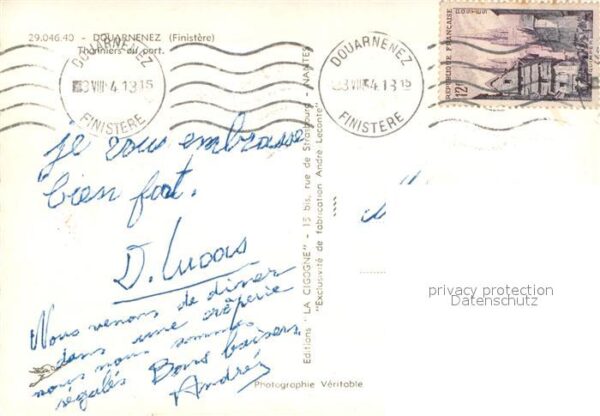 29.046.40 - DOUARNENEZ (Finistère)
Thoniers au port.
DOUARNENEZ
VIII 4.13 15
FINISTÈRE
DOUARNENEZ
VIII 4.13 15
FINISTÈRE
REPUBLIQUE FRANÇAISE
12F
je vous embrasse
bien fort.
Nous venons de dîner
dans une crêperie
nous nous sommes
régalés Bons baisers
André
Editions "LA CIGOGNE" - 15 bis, rue de Strasbourg - NANTES
"Exclusivité de fabrication André Leconte"
Photographie Véritable
privacy protection
Datenschutz